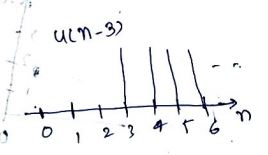 u(n-3)
0 1 2 3 4 5 6 n